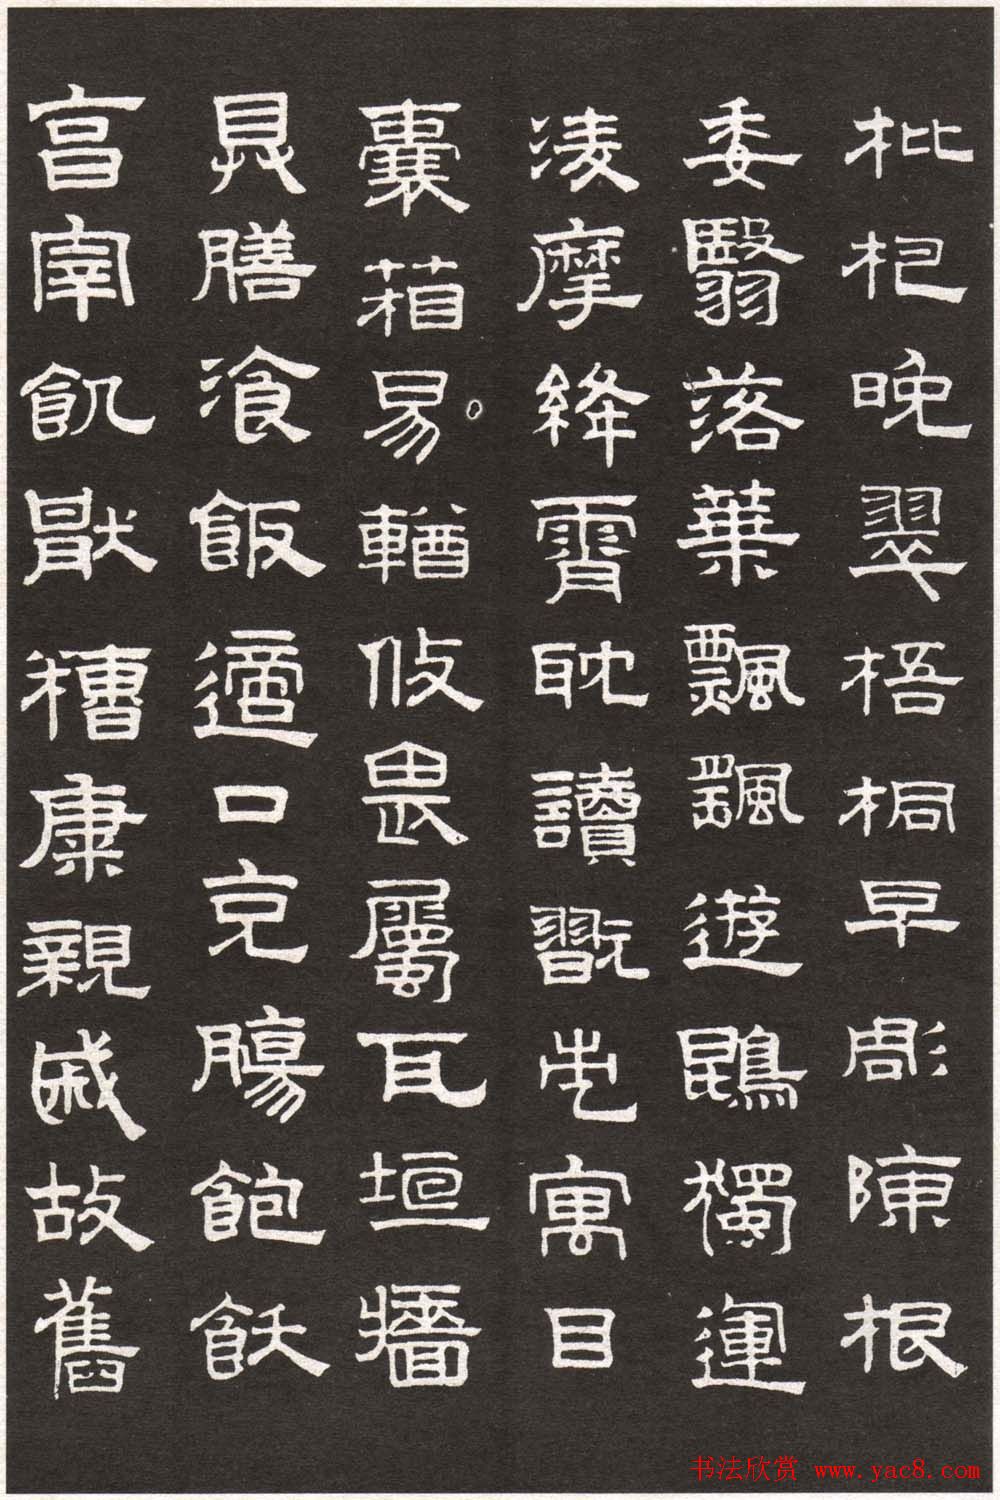 枇杷晚翠梧桐早彫陳根
委翳落葉飄颻遊鵾獨運
淩摩絳霄耽讀翫市寓目
囊箱易輶攸畏屬耳垣牆
具膳湌飯適口充腸飽飫
亯宰飢猒糟康親戚故舊
书法欣赏 www.yac8.com